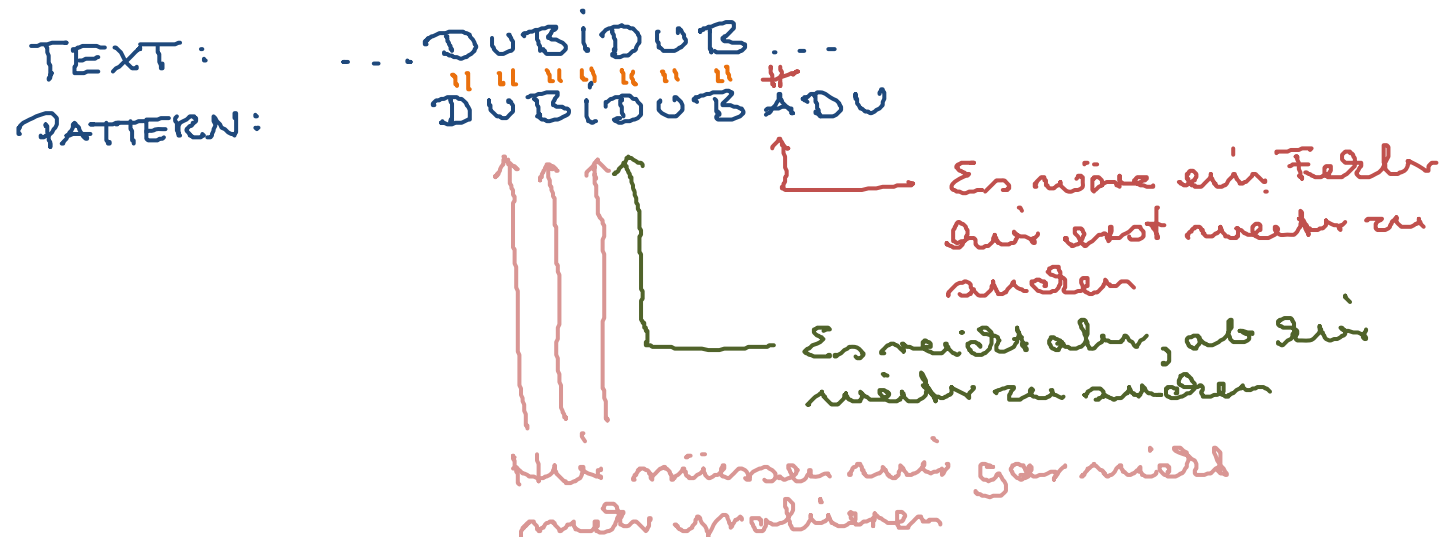 TEXT: ... DUBiDUB ...
PATTERN: DUBiDUBADU
Es wäre ein Fehler
hier erst weiter zu
suchen
Es reicht aber, ab hier
weiter zu suchen
Hier müssen wir gar nicht
mehr probieren